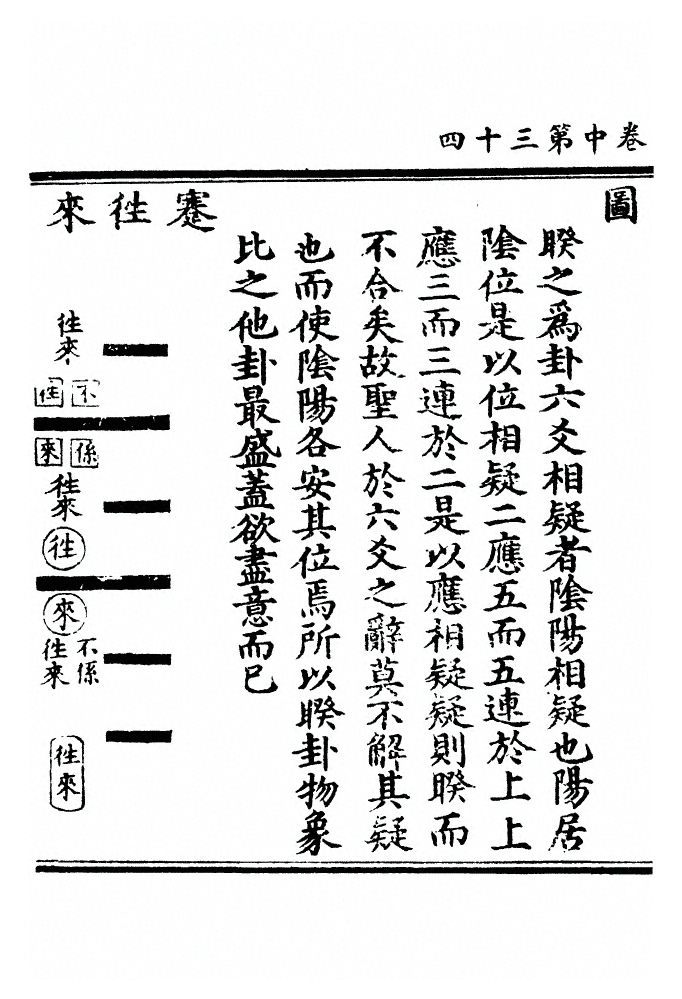 卷中第三十四
圖
睽之爲卦六爻相疑者陰陽相疑也陽居
陰位是以位相疑二應五而五連於上上
應三而三連於二是以應相疑疑則睽而
不合矣故聖人於六爻之辭莫不解其疑
也而使陰陽各安其位焉所以睽卦物象
比之他卦最盛蓋欲盡意而已
蹇徃來
徃來
不
徃
係
來
徃來
徃
來
不係
徃來
徃來